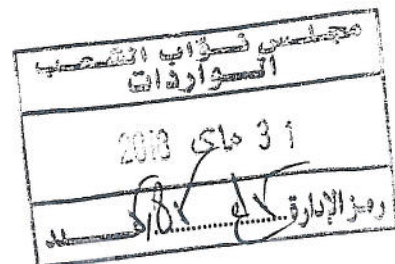 مجلس نواب الشعب
الواردات
31 ماي 2018
رمز الإدارة عدد